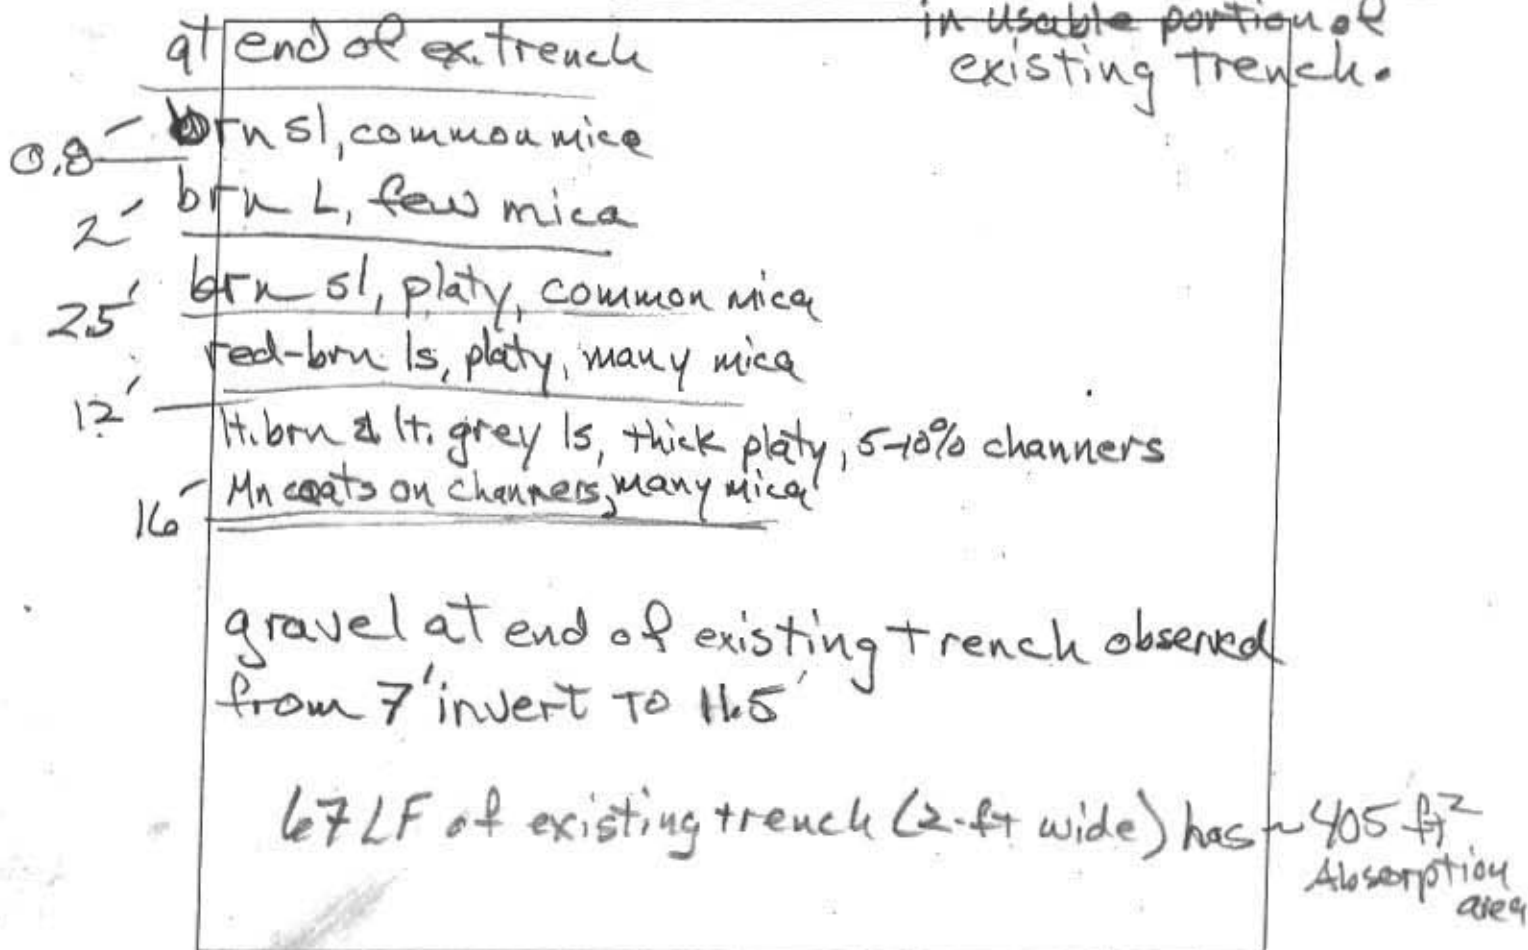 in usable portion of
existing trench.
at end of ex. trench
0.8' brn sl, common mica
2' brn L, few mica
2.5' brn sl, platy, common mica
red-brn ls, platy, many mica
12'
lt. brn & lt. grey ls, thick platy, 5-10% channers
Mn coats on channers, many mica
16'
gravel at end of existing trench observed
from 7' invert to 11.5'
67 LF of existing trench (2-ft wide) has ~ 405 ft²
Absorption
area